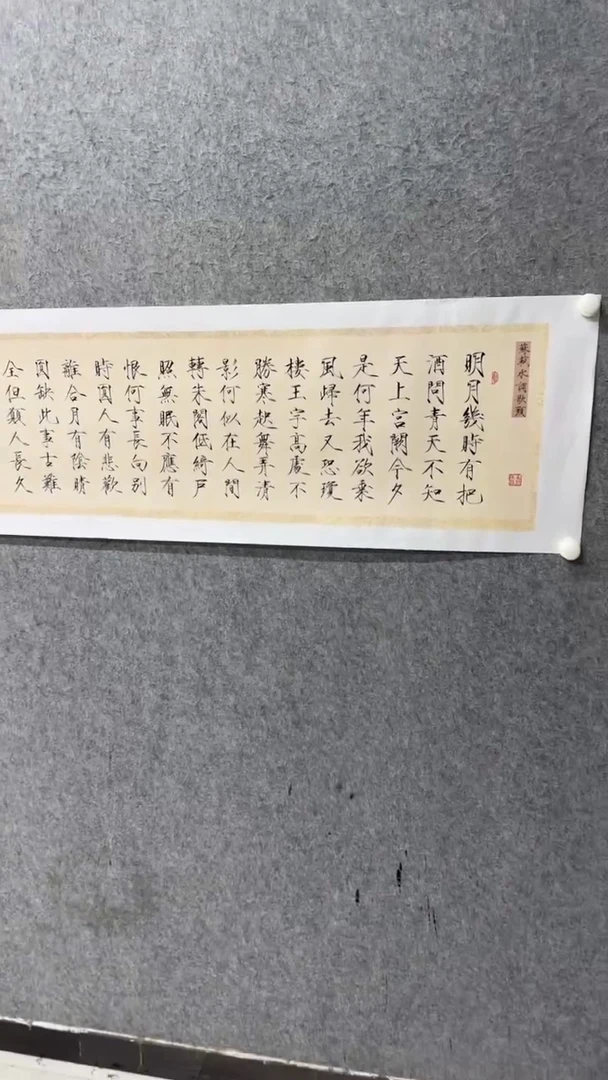 蘇軾水調歌頭
明月幾時有把
酒問青天不知
天上宮闕今夕
是何年我欲乘
風歸去又恐瓊
樓玉宇高處不
勝寒起舞弄清
影何似在人間
轉朱閣低綺戶
照無眠不應有
恨何事長向別
時圓人有悲歡
離合月有陰晴
圓缺此事古難
全但願人長久